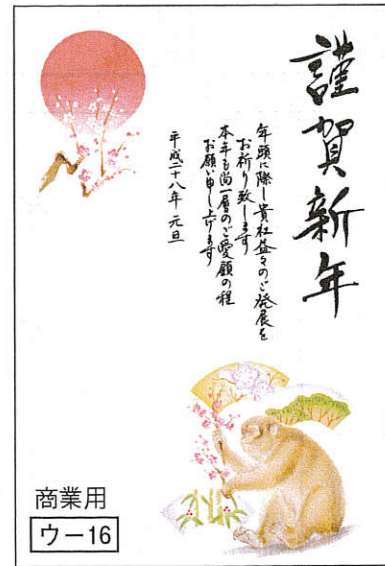 謹賀新年
年頭に際し貴社益々のご発展を
お祈り致します
本年も尚一層のご愛顧の程
お願い申し上げます
平成二十八年 元旦
商業用
ウー16